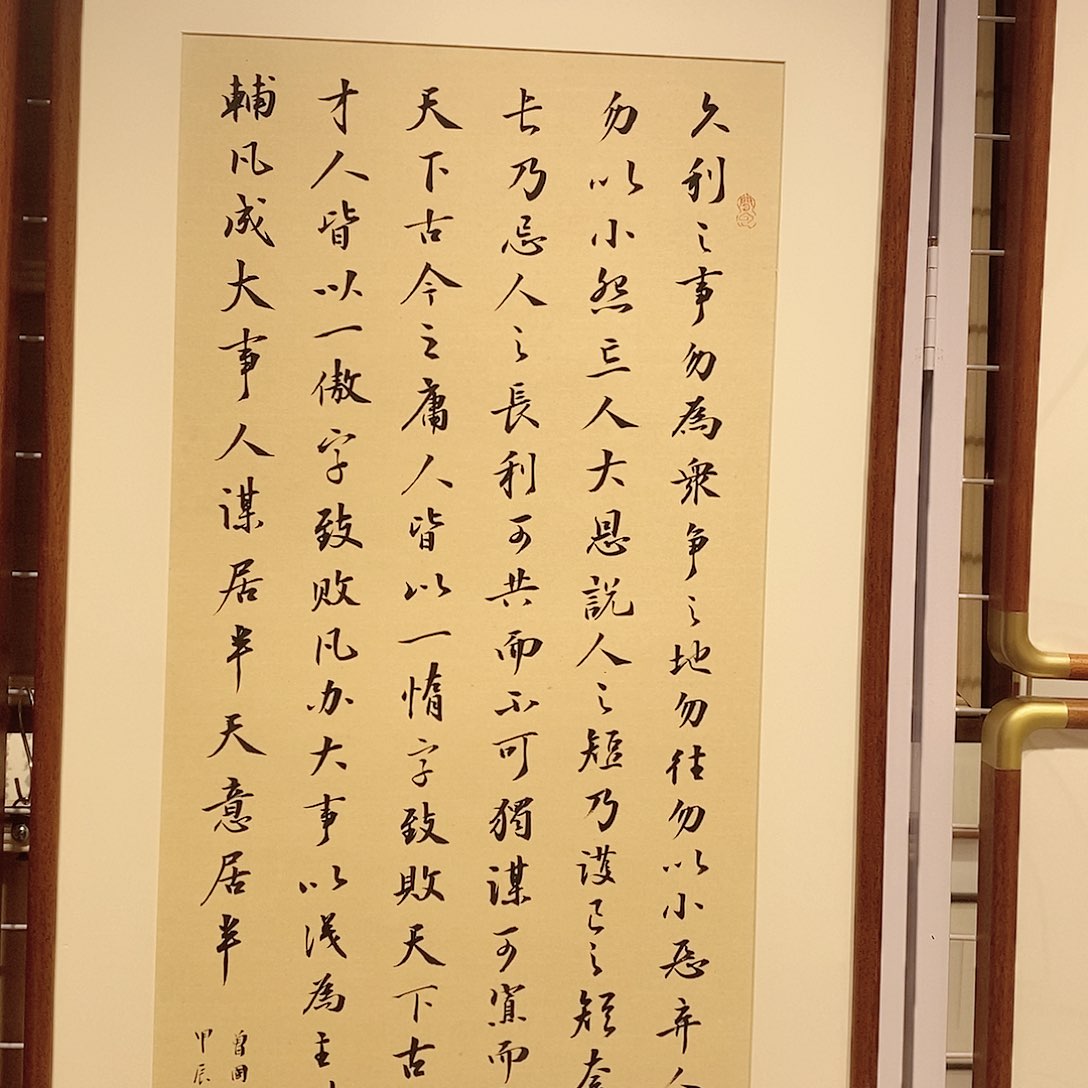 久利之事勿為衆争之地勿往勿以小惡弃人
勿以小怨忘人大恩説人之短乃護己之短夸
長乃忌人之長利可共而不可獨謀可寡而
天下古今之庸人皆以一惰字致敗天下古
才人皆以一傲字致败凡办大事以識為主
輔凡成大事人謀居半天意居半
曾國
甲辰